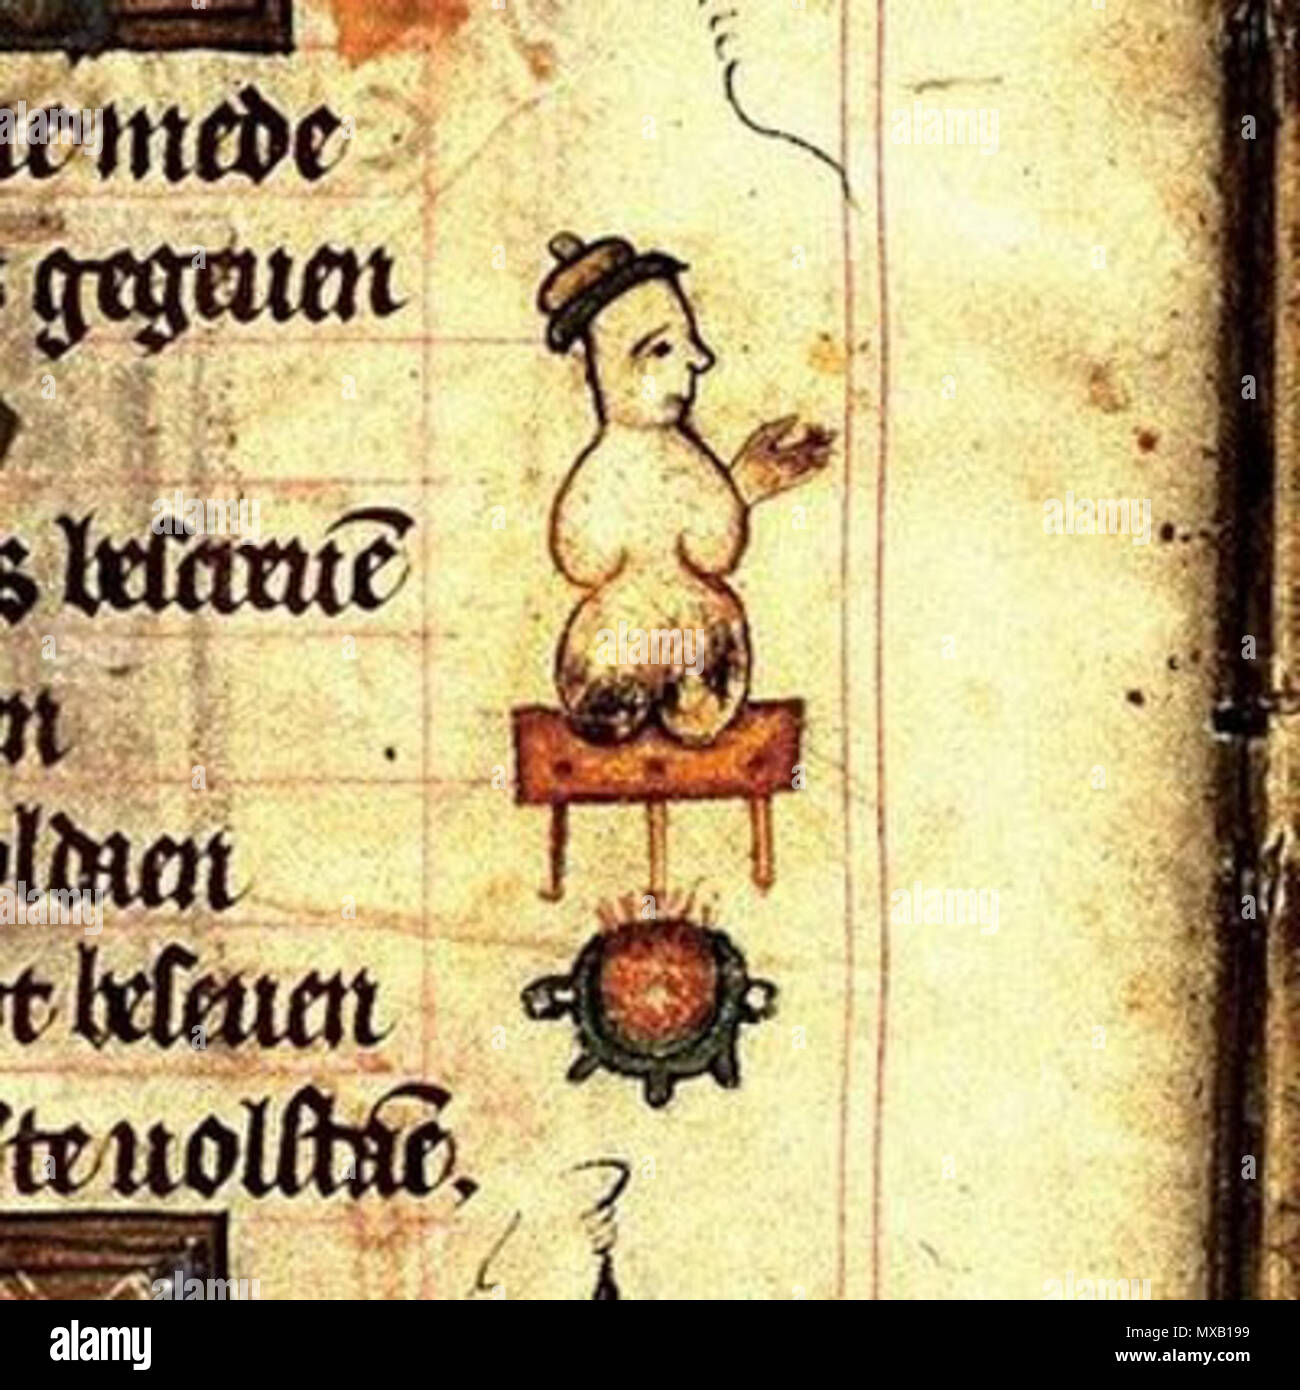 mede
gegeuen
s bescreuē
n
oldaen
t beseuen
ste uolstaē.
alamy
Image ID: MXB199
www.alamy.com